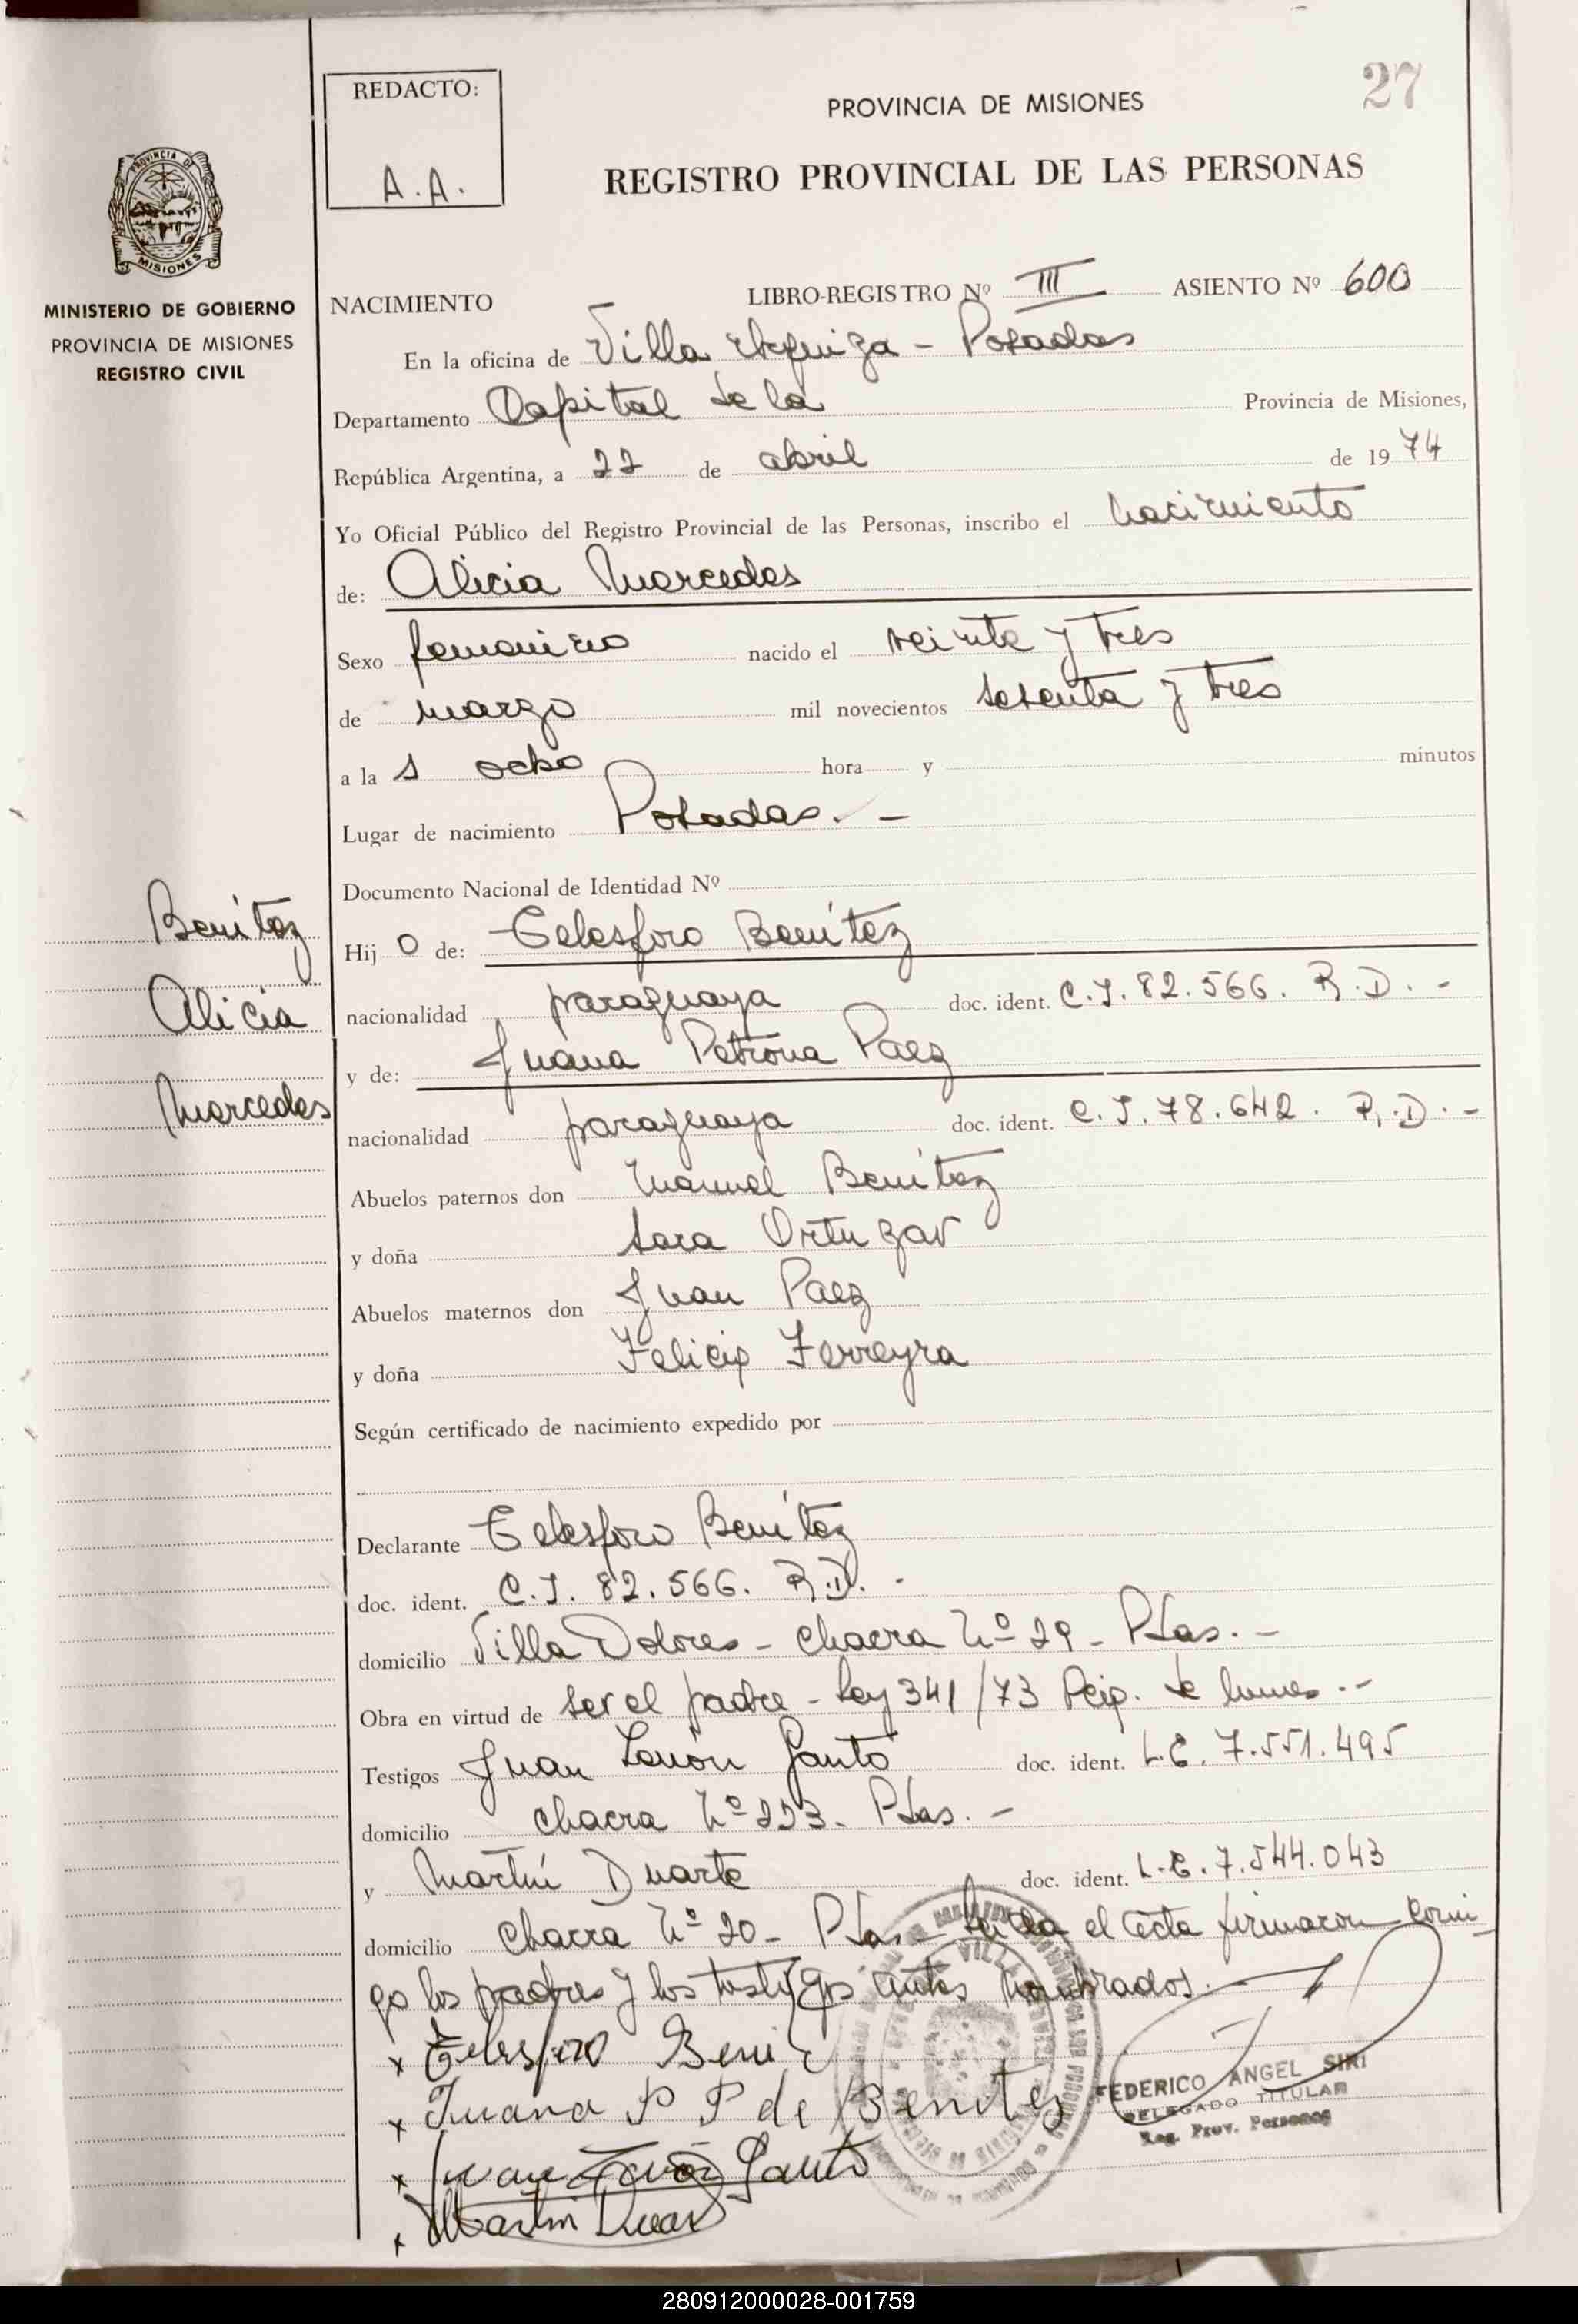 27
REDACTO:
A.A.
PROVINCIA DE MISIONES
REGISTRO PROVINCIAL DE LAS PERSONAS
PROVINCIA DE
MISIONES
MINISTERIO DE GOBIERNO
PROVINCIA DE MISIONES
REGISTRO CIVIL
NACIMIENTO LIBRO-REGISTRO Nº III ASIENTO Nº 600
En la oficina de Villa Urquiza - Posadas
Departamento Capital de la Provincia de Misiones,
República Argentina, a 22 de abril de 1974
Yo Oficial Público del Registro Provincial de las Personas, inscribo el nacimiento
de: Alicia Mercedes
Sexo femenino nacido el veinte y tres
de marzo mil novecientos setenta y tres
a la s ocho hora y minutos
Lugar de nacimiento Posadas. -
Documento Nacional de Identidad Nº
Benitez
Alicia
Mercedes
Hij o de: Telesforo Benítez
nacionalidad paraguaya doc. ident. C.I. 82.566. R.D. -
y de: Juana Petrona Paez
nacionalidad paraguaya doc. ident. C.I. 78.642. R.D. -
Abuelos paternos don Manuel Benítez
y doña Sara Ortuzar
Abuelos maternos don Juan Paez
y doña Ferreyra
Según certificado de nacimiento expedido por
Declarante Telesforo Benítez
doc. ident. C.I. 82.566. R.D. -
domicilio Villa Dolores - chacra Nº 29 - Pdas. -
Obra en virtud de ser el padre - Ley 341/73 de
Testigos Juan Gauto doc. ident. L.E. 7.551.495
domicilio chacra Nº 223. Pdas. -
y Martín Duarte doc. ident. L.E. 7.544.043
domicilio chacra Nº 20 - Pdas. - Leída el acta firmaron conmi
go los padres y los testigos antes nombrados. -
x Telesforo Beni
x Juana P P de Benites
x Juan Gauto
x Martin
FEDERICO ANGEL SIRI
DELEGADO TITULAR
Reg. Prov. Personas
280912000028-001759